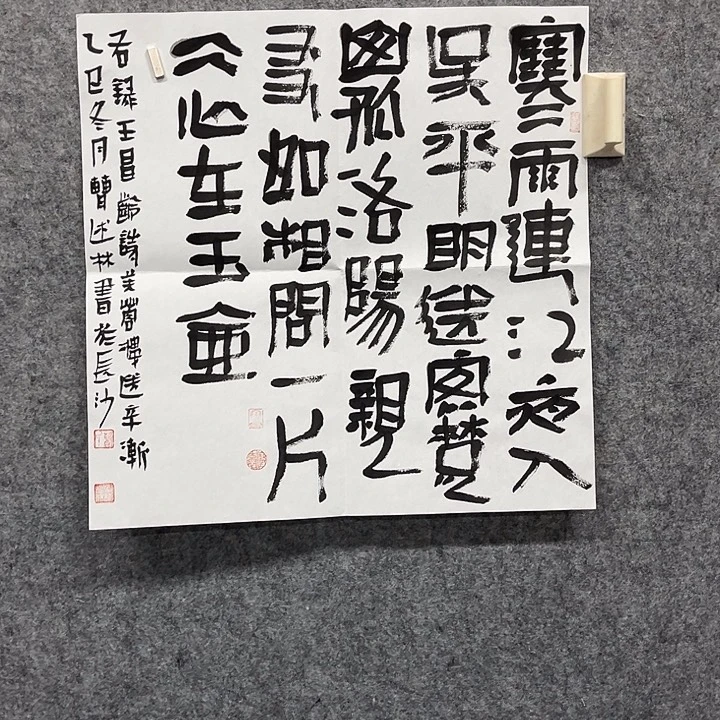 寒雨連江夜入
吳平明送客楚
山孤洛陽親
友如相問一片
冰心在玉壺
右録王昌齡詩芙蓉樓送辛漸
乙巳冬月曹述林書於長沙